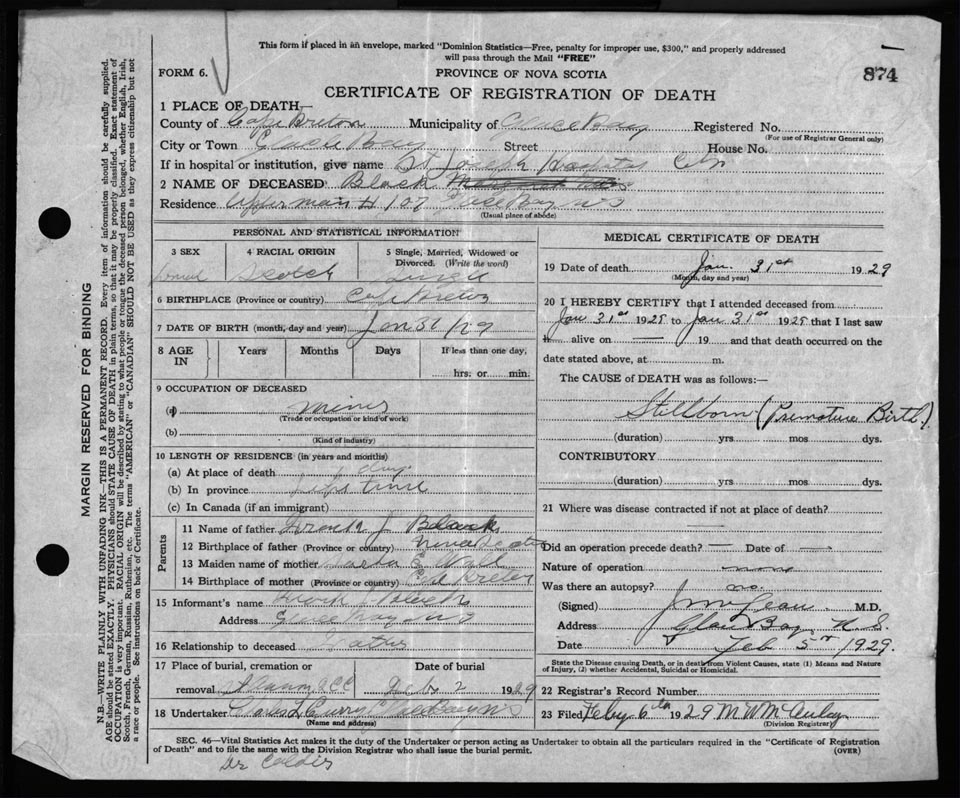 This form if placed in an envelope, marked "Dominion Statistics—Free, penalty for improper use, $300," and properly addressed
will pass through the Mail "FREE"
FORM 6.
PROVINCE OF NOVA SCOTIA
874
CERTIFICATE OF REGISTRATION OF DEATH
1 PLACE OF DEATH—
County of Cape Breton Municipality of Glace Bay Registered No.
(For use of Registrar General only)
City or Town Glace Bay Street House No.
If in hospital or institution, give name St Joseph Hospital
2 NAME OF DECEASED Black
Residence Glace Bay NS
(Usual place of abode)
PERSONAL AND STATISTICAL INFORMATION
3 SEX
4 RACIAL ORIGIN
Scotch
5 Single, Married, Widowed or
Divorced. (Write the word)
Single
6 BIRTHPLACE (Province or country) Cape Breton
7 DATE OF BIRTH (month, day and year) Jan 31/29
8 AGE
IN
Years Months Days If less than one day,
hrs. or min.
9 OCCUPATION OF DECEASED
(a)
(Trade or occupation or kind of work)
(b)
(Kind of industry)
10 LENGTH OF RESIDENCE (in years and months)
(a) At place of death 1 day
(b) In province life time
(c) In Canada (if an immigrant)
Parents
11 Name of father Frank J Black
12 Birthplace of father (Province or country)
13 Maiden name of mother
14 Birthplace of mother (Province or country) Cape Breton
15 Informant's name Frank J Black
Address Glace Bay NS
16 Relationship to deceased Father
17 Place of burial, cremation or
removal
Date of burial
Feb 2 1929
18 Undertaker Curry Glace Bay NS
(Name and address)
MEDICAL CERTIFICATE OF DEATH
19 Date of death Jan. 31st 1929
(Month, day and year)
20 I HEREBY CERTIFY that I attended deceased from
Jan 31st 1929 to Jan 31st 1929 that I last saw
h alive on — 19 — and that death occurred on the
date stated above, at m.
The CAUSE of DEATH was as follows:—
Stillborn (Premature Birth.)
(duration) yrs mos dys.
CONTRIBUTORY
(duration) yrs. mos dys.
21 Where was disease contracted if not at place of death?
Did an operation precede death? — Date of —
Nature of operation none
Was there an autopsy? no.
(Signed) M.D.
Address Glace Bay, N.S.
Date Feb 5th 1929.
State the Disease causing Death, or in death from Violent Causes, state (1) Means and Nature
of Injury, (2) whether Accidental, Suicidal or Homicidal.
22 Registrar's Record Number
23 Filed Feby 6th 1929 M W McAuley
(Division Registrar)
SEC. 46—Vital Statistics Act makes it the duty of the Undertaker or person acting as Undertaker to obtain all the particulars required in the "Certificate of Registration
of Death" and to file the same with the Division Registrar who shall issue the burial permit.
(OVER)
Dr
MARGIN RESERVED FOR BINDING
N.B.—WRITE PLAINLY WITH UNFADING INK—THIS IS A PERMANENT RECORD. Every item of information should be carefully supplied.
AGE should be stated EXACTLY. PHYSICIANS should STATE CAUSE OF DEATH in plain terms, so that it may be properly classified. Exact statement of
OCCUPATION is very important. RACIAL ORIGIN will be described by stating to what people or tongue the deceased person belonged, whether English, Irish,
Scotch, French, German, Russian, Ruthenian, etc. The terms "AMERICAN" or "CANADIAN" SHOULD NOT BE USED as they express citizenship but not
a race or people. See instructions on back of Certificate.